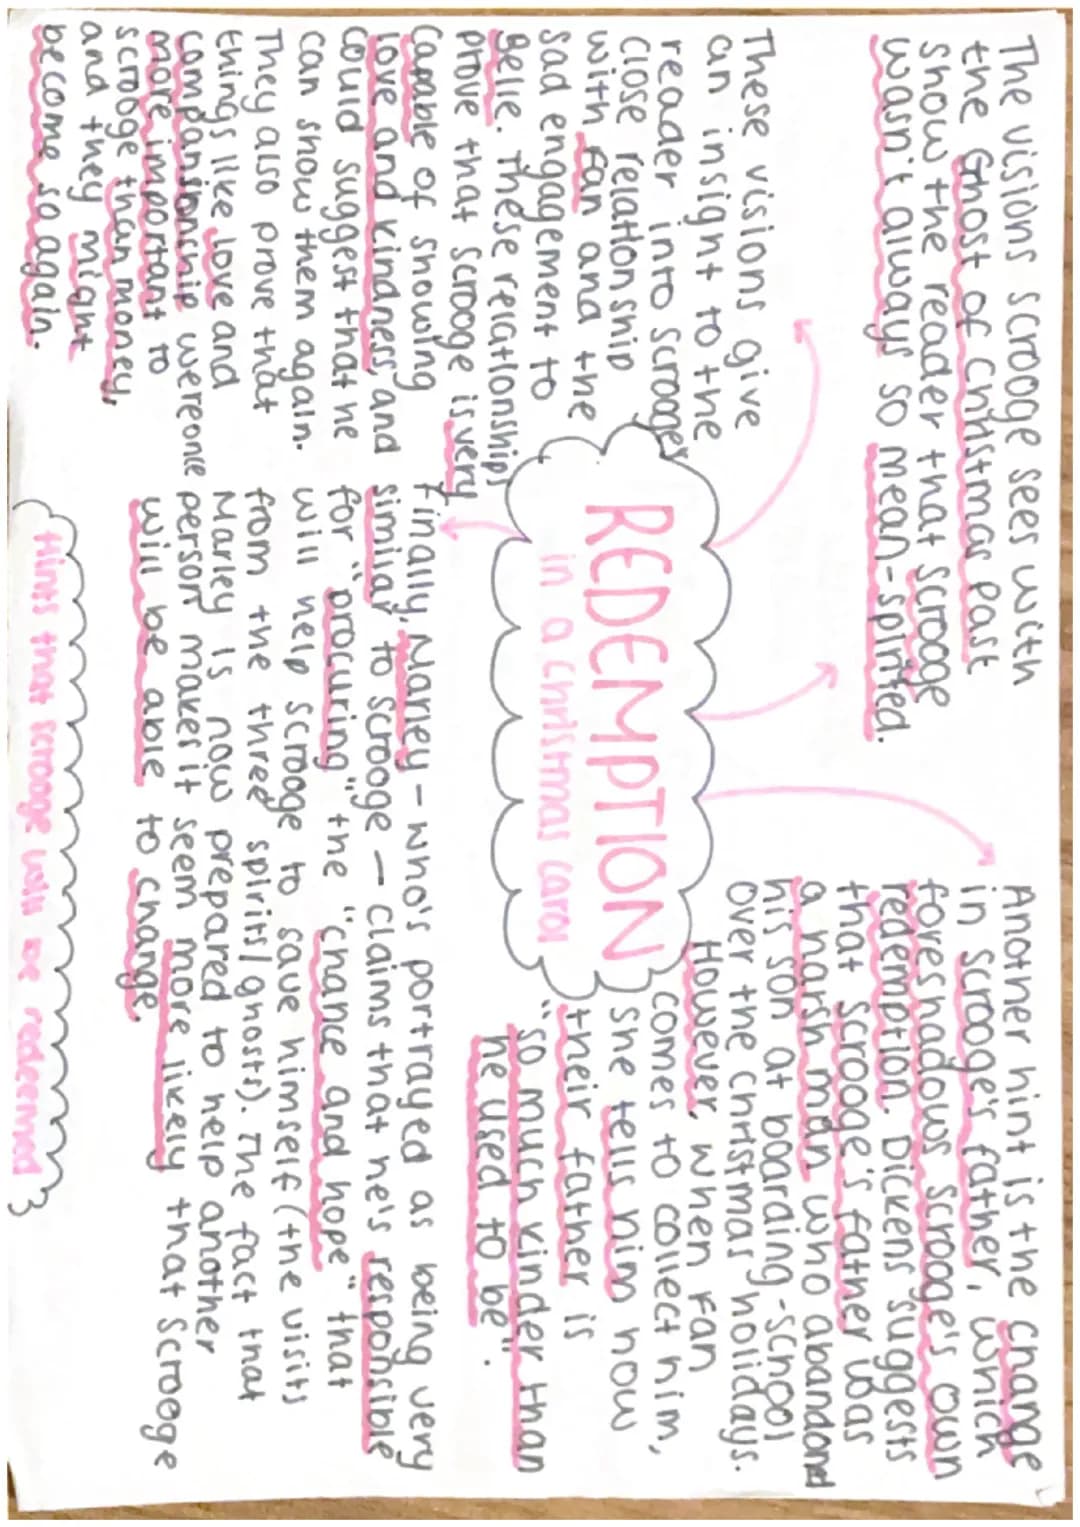 The visions scrooge sees with
the Ghost of Christmas Past
show the reader that Scrooge
wasn't always so mean-spirited.
These visions give
an insight to the
reader into scrooges
close relationship
with Fan and the
sad engagement to
Belle. These relationships
prove that scrooge is very
capable of showing
love and kindness, and
could suggest that he
can show them again.
They also prove that
things like love and
companionship were once
more important to
scrooge than money,
and they might
become so again.
REDEMPTION
in a christmas carol
Another hint is the change
in Scrooge's father, which
foreshadows Scrooge's own
redemption. Dickens suggests
that Scrooge's father was
a harsh man who abandoned
his son at boarding-school
over the christmas holidays.
However, when Fan
comes to collect him,
she tells him how
their father is
"so much kinder than
he used to be".
Finally, Marley - who's portrayed as being very
similar to scrooge - claims that he's responsible
for "procuring" the "chance and hope" that
will help scrooge to save himself (the visits
from the three spirits/ghosts). The fact that
Marley is now prepared to help another
person makes it seem more likely that scrooge
will be able to change.
Hints that scrooge will be redeemed